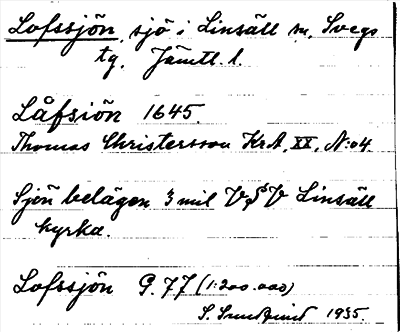 Lofssjön, sjö i Linsäll sn, Svegs
tg, Jämtl. l.
Låfsiön 1645.
Thomas Christersson KrA, XX, N:o 4.
Sjön belägen 3 mil VSV Linsäll
kyrka.
Lofssjön G. 77 (1:200.000)
S. Sundquist 1935.